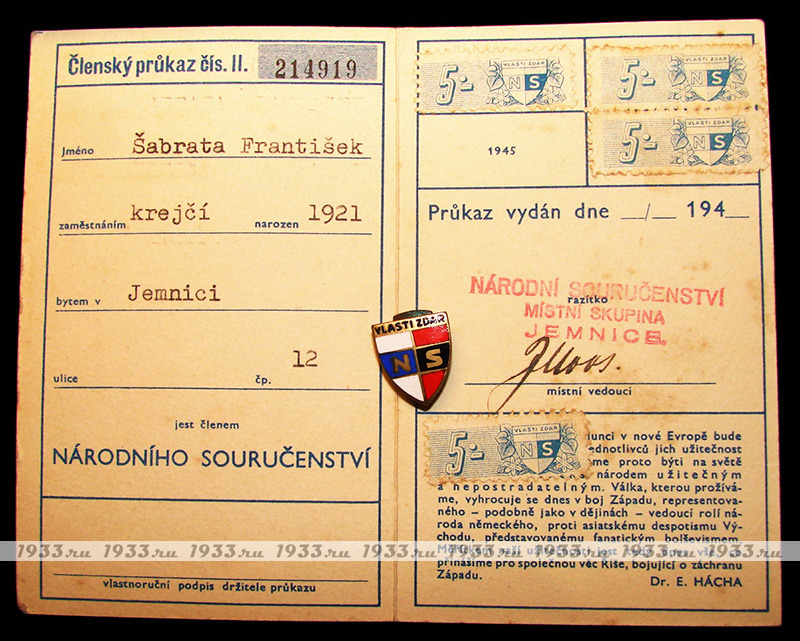 Členský průkaz čís. II. 214919
Jméno Šabrata František
zaměstnáním krejčí narozen 1921
bytem v Jemnici
ulice čp. 12
jest členem
NÁRODNÍHO SOURUČENSTVÍ
vlastnoruční podpis držitele průkazu
5·- VLASTI ZDAR NS
5·- VLASTI ZDAR NS
5·- VLASTI ZDAR NS
1945
Průkaz vydán dne __/__ 194__
NÁRODNÍ SOURUČENSTVÍ
razítko
MÍSTNÍ SKUPINA
JEMNICE
místní vedoucí
VLASTI ZDAR
NS
5·- VLASTI ZDAR NS
v nové Evropě bude
jich užitečnost
proto býti na světě
národem užitečným
a nepostradatelným. Válka, kterou prožívá-
me, vyhrocuje se dnes v boj Západu, representova-
ného – podobně jako v dějinách – vedoucí rolí ná-
roda německého, proti asiatskému despotismu Vý-
chodu, představovanému fanatickým bolševismem.
naší užitečnosti jest
přinášíme pro společnou věc Říše, bojující o záchranu
Západu.
Dr. E. HÁCHA
1933.ru 1933.ru 1933.ru 1933.ru 1933.ru 1933.ru 1933.ru 1933.ru 1933.ru